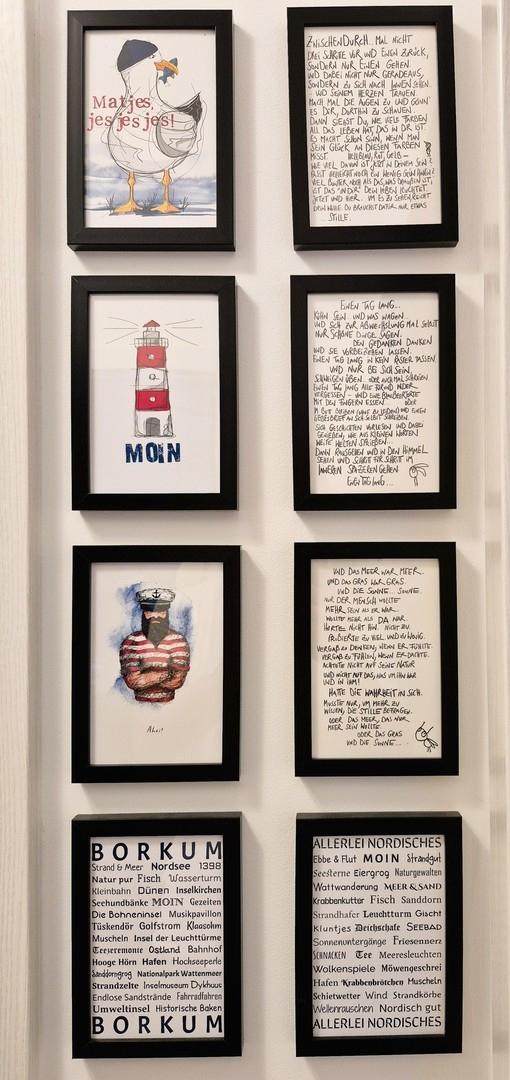 Matjes,
jes jes jes!
ZWISCHENDURCH... MAL NICHT
DREI SCHRITE VOR UND EINEN ZURÜCK,
SONDERN NUR EINEN GEHEN.
UND DABEI NICHT NUR GERADEAUS,
SONDERN ZU SICH NACH INNEN SEHEN
UND SEINEM HERZEN TRAUEN.
MACH MAL DIE AUGEN ZU UND GÖNN'
ES DIR, DORTHIN ZU SCHAUEN.
DANN SIEHST DU, WIE VIELE FARBEN
ALL DAS LEBEN HAT, DAS IN DIR IST.
ES MACHT SCHON SINN, WENN MAN
SEIN GLÜCK AN DIESEN FARBEN
MISST. HELLBLAU, ROT, GELB –
WIE VIEL DAVON IST JETZT IN DEINEM SEIN?
PASST VIELLEICHT NOCH EIN WENIG GRÜN HINEIN?
VIEL BUNTER NOCH ALS DAS, WAS DRAUßEN IST,
IST DAS "IN DIR". DEIN LEBEN LEUCHTET
JETZT UND HIER. UM ES ZU SEHEN, REICHT
DEIN WILLE. DU BRAUCHST DAFÜR NUR ETWAS
...STILLE.
MOIN
EINEN TAG LANG...
KÜHN SEIN. UND WAS WAGEN.
UND SICH ZUR ABWECHSLUNG MAL SELBST
NUR SCHÖNE DINGE SAGEN.
DEN GEDANKEN DANKEN
UND SIE VORBEIZIEHEN LASSEN.
EINEN TAG LANG IN KEIN RASTER PASSEN.
UND NUR BEI SICH SEIN,
SCHWEIGEN ÜBEN. ODER AUCH MAL SCHREIEN.
EINEN TAG LANG ALLE FÜR UND WIDER
VERGESSEN – UND EINE
MIT DEN FINGERN ESSEN. ODER
IM BETT BLEIBEN (WAS ZU LESEN) UND EINEN
LIEBESBRIEF AN SICH SELBST SCHREIBEN.
SICH GESCHICHTEN VORLESEN UND DABEI
GENIEßEN, WIE AUS KLEINEN WORTEN
WEITE WELTEN SPRIEßEN...
DANN RAUSGEHEN UND IN DEN HIMMEL
SEHEN UND SCHRITT FÜR SCHRITT IM
INNEREN SPAZIEREN GEHEN
EINEN TAG LANG...
Ahoi!
UND DAS MEER WAR MEER.
UND DAS GRAS WAR GRAS.
UND DIE SONNE... SONNE.
NUR DER MENSCH WOLLTE
MEHR SEIN ALS ER WAR.
WOLLTE MEHR ALS DA WAR.
HÖRTE NICHT HIN. NICHT ZU.
PROBIERTE ZU VIEL UND ZU WENIG.
VERGAß ZU DENKEN, WENN ER FÜHLTE.
VERGAß ZU FÜHLEN, WENN ER DACHTE.
ACHTETE NICHT AUF SEINE NATUR
UND NICHT AUF DAS, WAS UM IHN WAR
UND IN IHM!
HATTE DIE WAHRHEIT IN SICH.
MUSSTE NUR, UM MEHR ZU
WISSEN, DIE STILLE BEFRAGEN.
ODER DAS MEER, DAS NUR
MEER SEIN WOLLTE.
ODER DAS GRAS
UND DIE SONNE...
BORKUM
Strand & Meer Nordsee 1398
Natur pur Fisch Wasserturm
Kleinbahn Dünen Inselkirchen
Seehundbänke MOIN Gezeiten
Die Bohneninsel Musikpavillon
Tüskendör Golfstrom Klaasohm
Muscheln Insel der Leuchttürme
Teezeremonie Ostland Bahnhof
Hooge Hörn Hafen Hochseeperle
Sanddorngrog Nationalpark Wattenmeer
Strandzelte Inselmuseum Dykhuus
Endlose Sandstrände Fahrradfahren
Umweltinsel Historische Baken
BORKUM
ALLERLEI NORDISCHES
Ebbe & Flut MOIN Strandgut
Seesterne Eiergrog Naturgewalten
Wattwanderung MEER & SAND
Krabbenkutter Fisch Sanddorn
Strandhafer Leuchtturm Gischt
Kluntjes Deichschafe SEEBAD
Sonnenuntergänge Friesennerz
SCHNACKEN Tee Meeresleuchten
Wolkenspiele Möwengeschrei
Hafen Krabbenbrötchen Muscheln
Schietwetter Wind Strandkörbe
Wellenrauschen Nordisch gut
ALLERLEI NORDISCHES